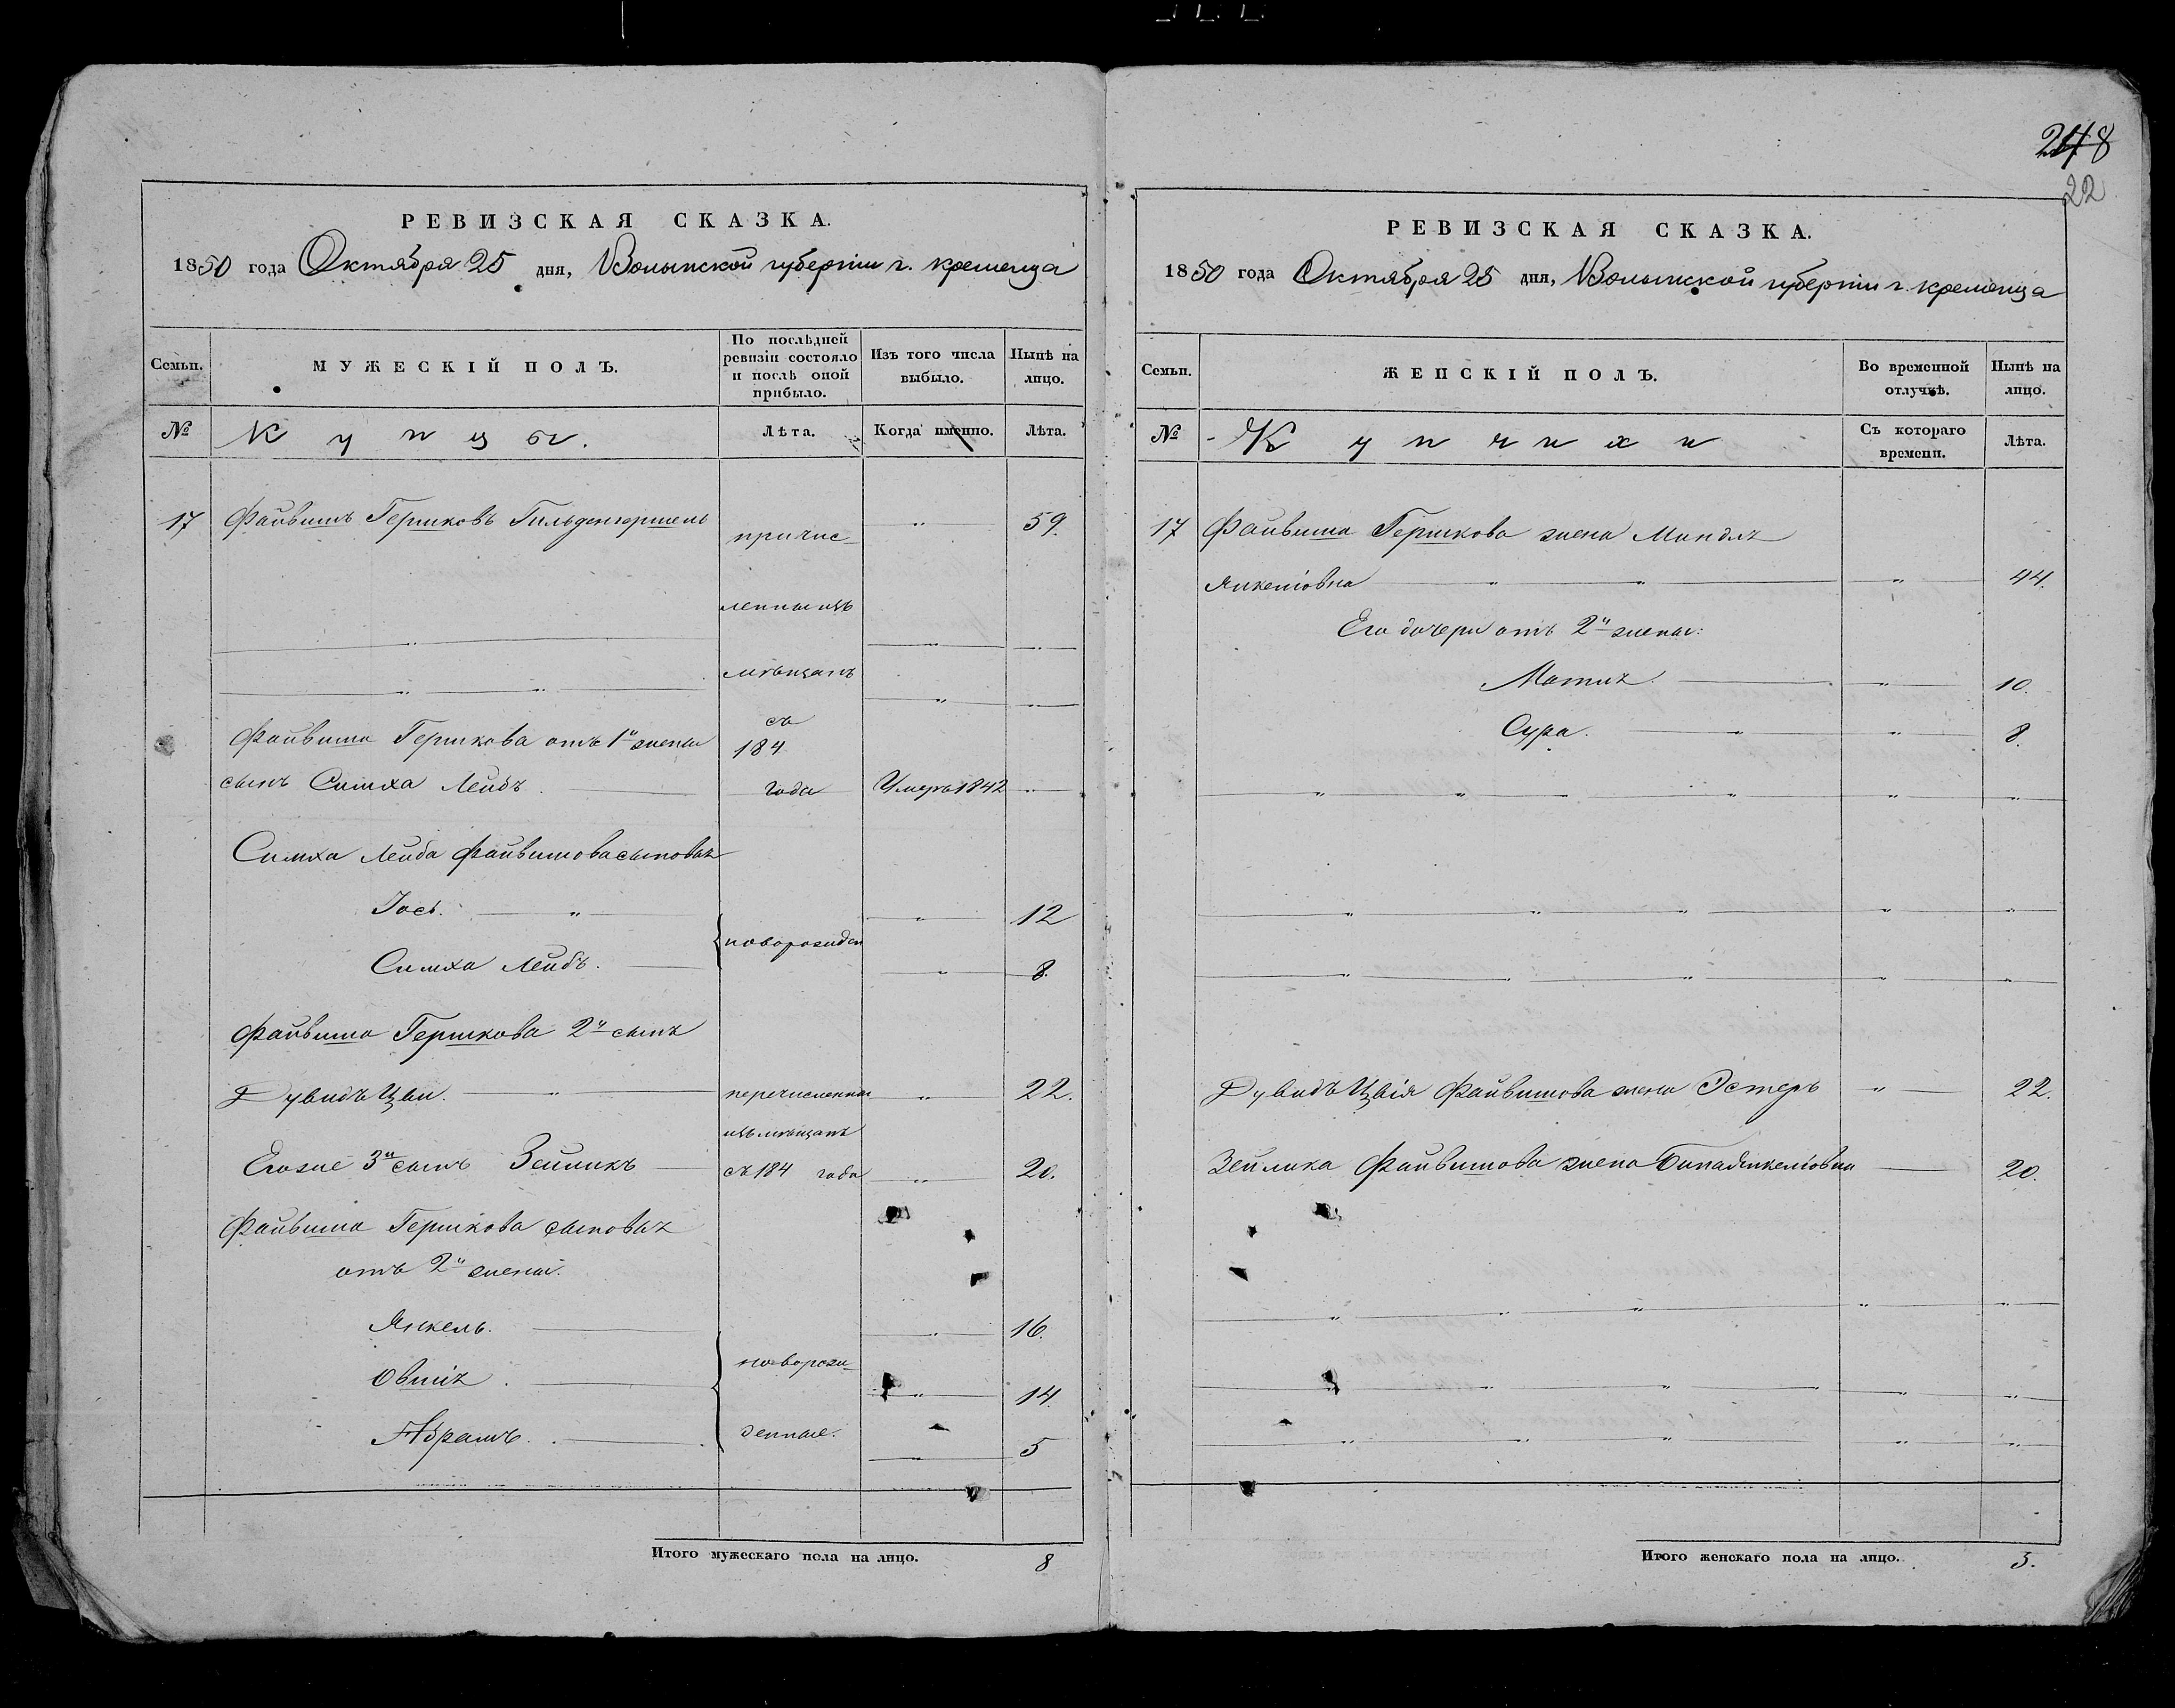 248
22
РЕВИЗСКАЯ СКАЗКА.
1850 года Октября 25 дня, Волынской губерніи г. кременца
Семьи.
МУЖЕСКІЙ ПОЛЪ.
По послѣдней ревизіи состояло и послѣ оной прибыло.
Изъ того числа выбыло.
Нынѣ на лицо.
№
Купцы.
Лѣта.
Когда именно.
Лѣта.
17 Файвишъ Гершковъ 59.
причис-
ленныизъ
мѣщанъ
Файвиша Гершкова отъ 1й жены
съ 184
сынъ Симха Лейбъ. года Умеръ 1842
Симха Лейба Файвишова сыновья
Іось. 12
новорожден
Симха Лейбъ. 8.
Файвиша Гершкова 2й сынъ
Дувидъ Цви. перечисленныи 22.
изъ мѣщанъ
Егоже 3й сынъ Зейликъ съ 184 года 20.
Файвиша Гершкова сыновья
отъ 2й жены.
Янкель. 16.
новорож-
14.
Абрамъ. денные. 5
Итого мужескаго пола на лицо. 8
РЕВИЗСКАЯ СКАЗКА.
1850 года Октября 25 дня, Волынской губерніи г. кременца
Семьи.
ЖЕНСКІЙ ПОЛЪ.
Во временной отлучкѣ.
Нынѣ на лицо.
№
Купчихи
Съ котораго времени.
Лѣта.
17 Файвиша Гершкова жена Миндля
Янкеліовна 44.
Его дочери отъ 2й жены:
10.
Сура. 8.
Дувидъ Цвія Файвишова жена Эстеръ 22.
Зейлика Файвишова жена 20.
Итого женскаго пола на лицо. 5.